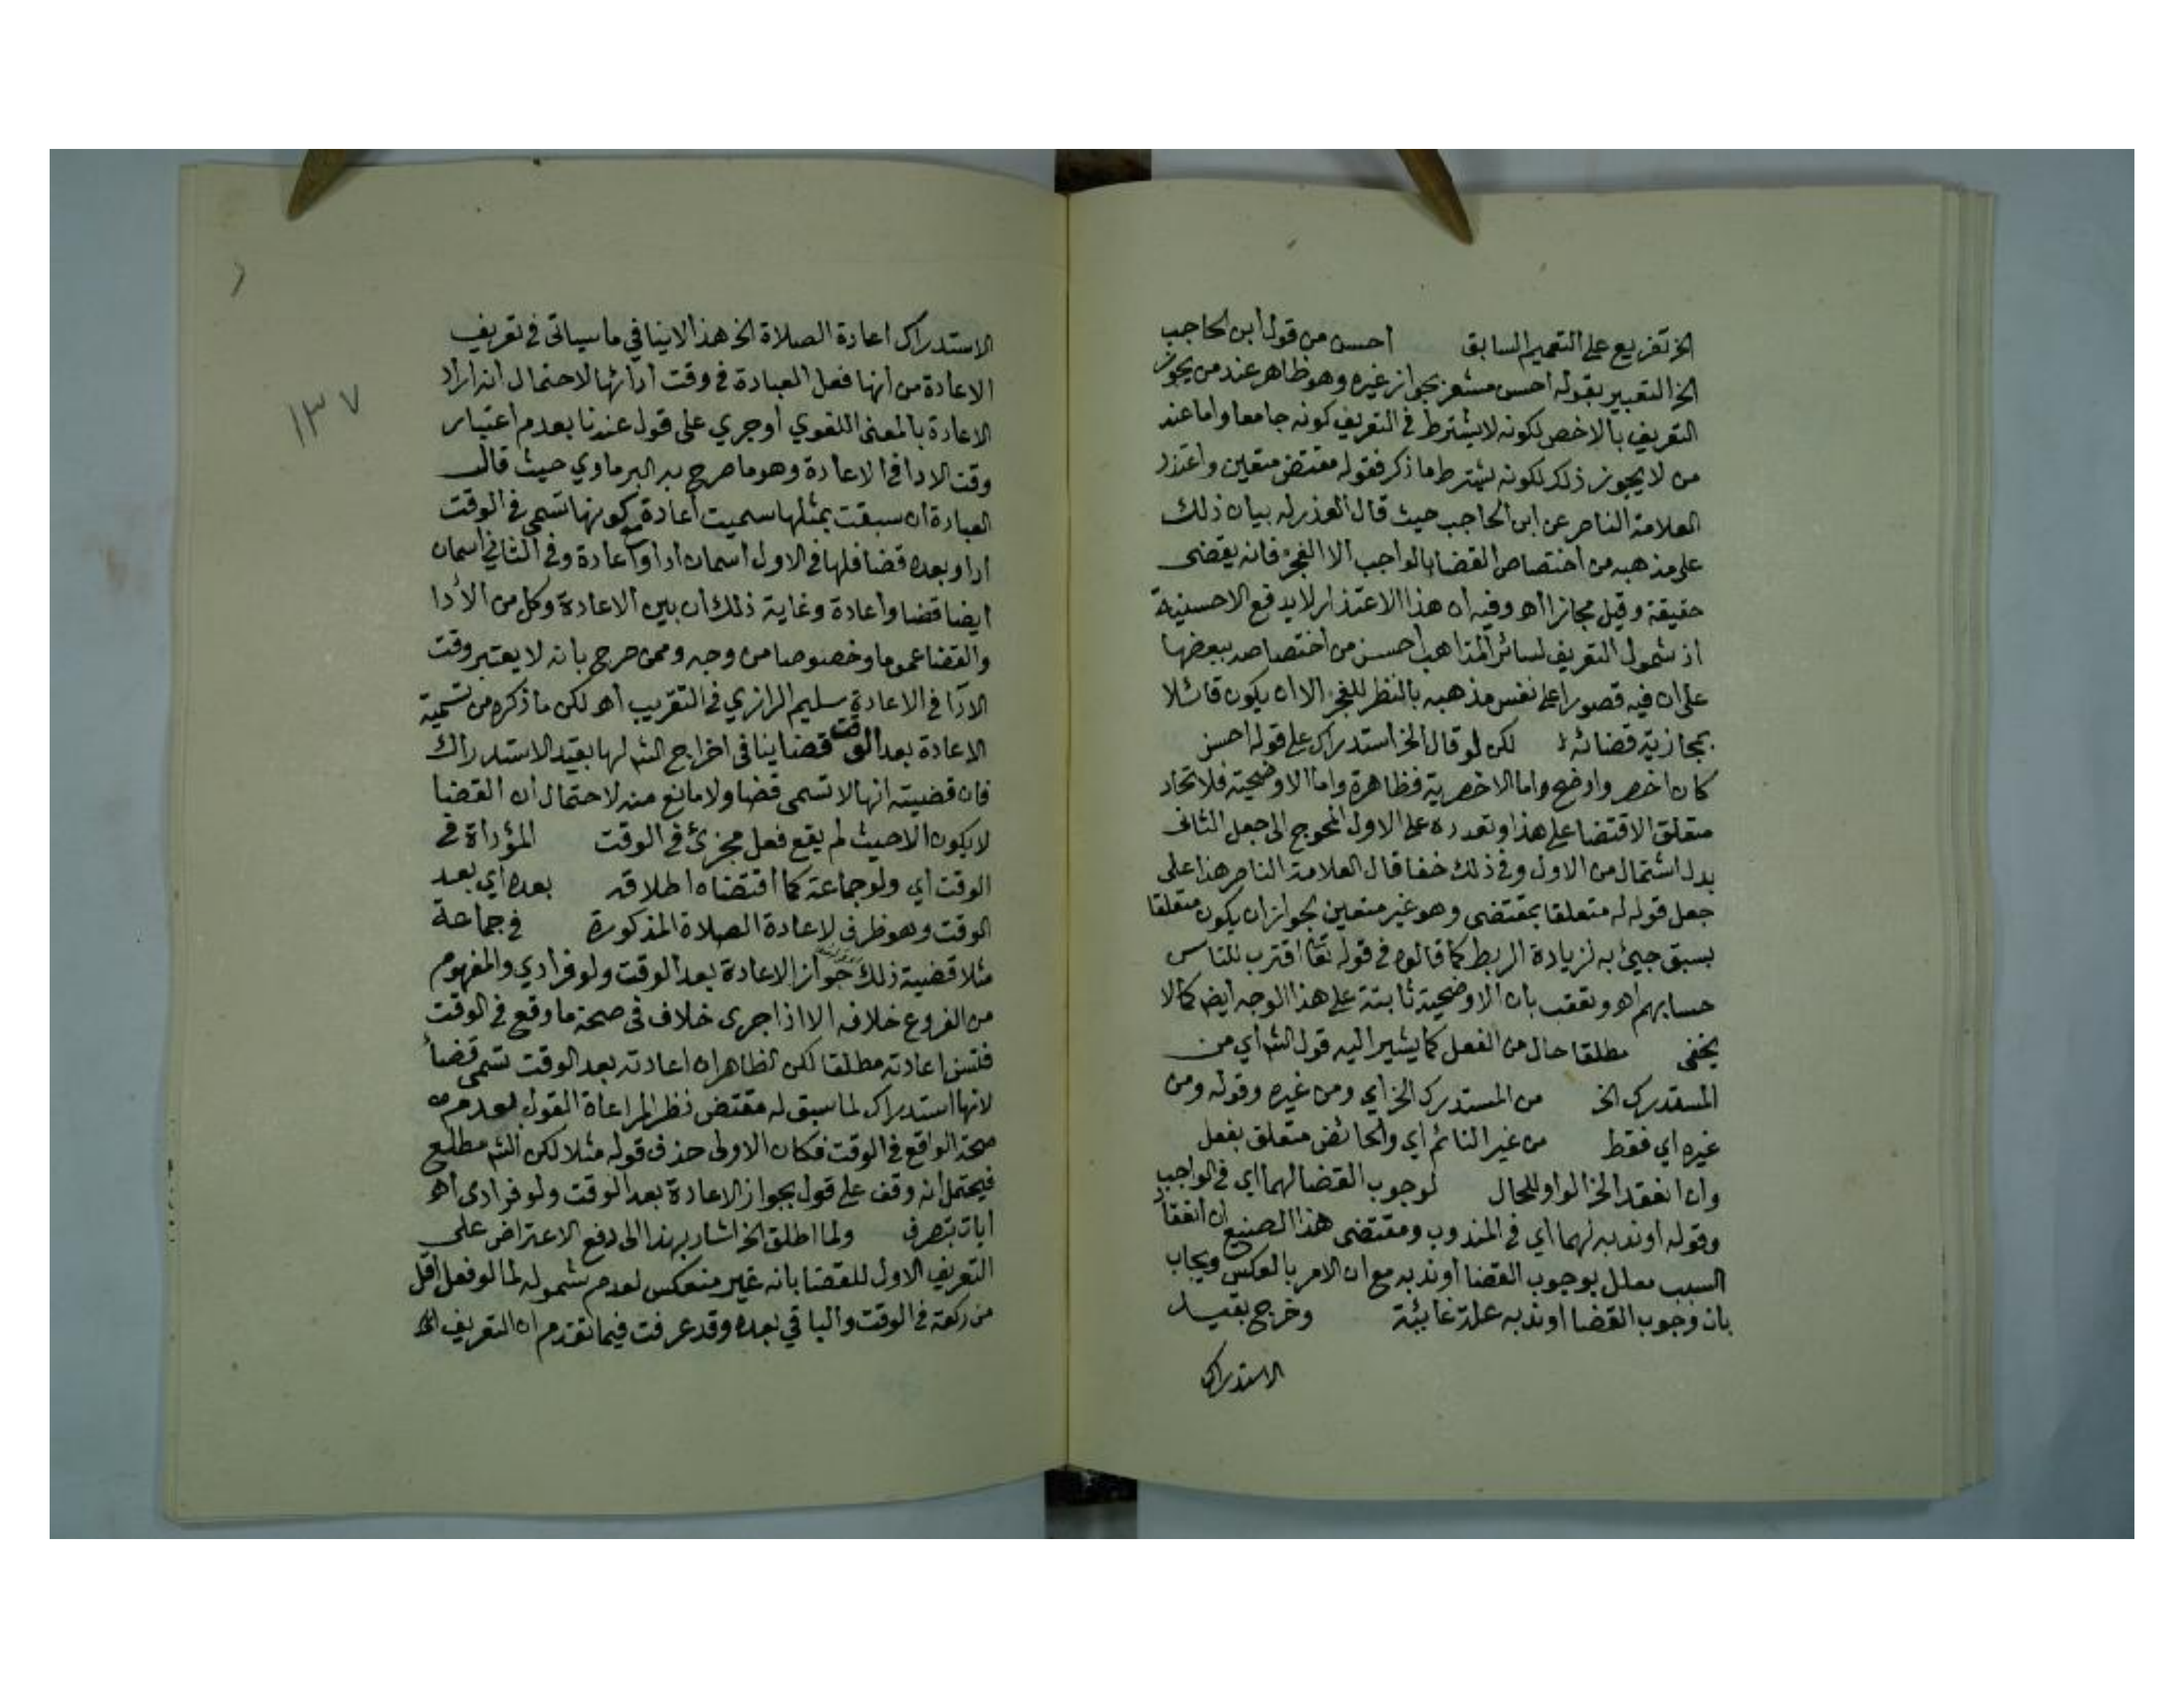 الخ تفريع على التعميم السابق احسن من قول ابن الحاجب
الخ التعبير بقوله احسن مشعر بجواز غيره وهو ظاهر عند من يجوز
التعريف بالاخص لكونه لا يشترط في التعريف كونه جامعا واما عند
من لا يجوز ذلك لكونه يشترط ما ذكر فقوله مقتض متعين واعتذر
العلامة الناصر عن ابن الحاجب حيث قال العذر له بيان ذلك
على مذهبه من اختصاص القضا بالواجب الا الفجر فانه يقضى
حقيقة وقيل مجازا اهـ وفيه ان هذا الاعتذار لا يدفع الاحسنية
اذ شمول التعريف لسائر المذاهب احسن من اختصاصه ببعضها
على ان فيه قصورا على نفس مذهبه بالنظر للفجر الا ان يكون قائلا
بمجازية قضائه لكن لو قال الخ استدراك على قوله احسن
كان اخصر واوضح واما الاخصرية فظاهرة واما الاوضحية فلاتحاد
متعلق الاقتضا على هذا وتعدده على الاول المحوج الى جعل الثاني
بدل اشتمال من الاول وفي ذلك خفا قال العلامة الناصر هذا على
جعل قوله له متعلقا بمقتضى وهو غير متعين لجواز ان يكون متعلقا
بسبق جيئ به لزيادة الربط كما قالوه في قوله تعا اقترب للناس
حسابهم اهـ وتعقب بان الاوضحية ثابتة على هذا الوجه ايضا كما لا
يخفى مطلقا حال من الفعل كما يشير اليه قول الشـ اي من
المستدرك الخ من المستدرك الخ اي ومن غيره وقوله ومن
غيره اي فقط من غير النائم اي والحائض متعلق بفعل
وان انعقد الخ الواو للحال لوجوب القضا لهما اي في الواجب
وقوله او ندبه لهما اي في المندوب ومقتضى هذا الصنيع ان انعقاد
السبب معلل بوجوب القضا او ندبه مع ان الامر بالعكس ويجاب
بان وجوب القضا او ندبه علة غائية وخرج بقيد
الاستدراك
١٣٧
الاستدراك اعادة الصلاة الخ هذا لا ينافي ما سياتي في تعريف
الاعادة من انها فعل العبادة في وقت ادائها لاحتمال انه اراد
الاعادة بالمعنى اللغوي او جري على قول عندنا بعدم اعتبار
وقت الادا في الاعادة وهو ما صرح به البرماوي حيث قال
العبادة ان سبقت بمثلها سميت اعادة مع كونها تسمى في الوقت
ادا وبعده قضا فلها في الاول اسمان ادا واعادة وفي الثاني اسمان
ايضا قضا واعادة وغاية ذلك ان بين الاعادة وكل من الأدا
والقضا عموما وخصوصا من وجه وممن صرح بانه لا يعتبر وقت
الادا في الاعادة سليم الرازي في التقريب اهـ لكن ما ذكره من تسمية
الاعادة بعد الوقت قضا ينافي اخراج الشـ لها بقيد الاستدراك
فان قضيته انها لا تسمى قضا ولا مانع منه لاحتمال ان القضا
لا يكون الا حيث لم يقع فعل مجزئ في الوقت المؤداة في
الوقت اي ولو جماعة كما اقتضاه اطلاقه بعده اي بعد
الوقت وهو ظرف لاعادة الصلاة المذكورة في جماعة
مثلا قضية ذلك جواز الاعادة بعد الوقت ولو فرادي والمفهوم
من الفروع خلافه الا اذا جرى خلاف في صحة ما وقع في الوقت
فتسن اعادته مطلقا لكن الظاهر ان اعادته بعد الوقت تسمى قضأ
لانها استدراك لما سبق له مقتض نظر المراعاة القول بعدم
صحة الواقع في الوقت فكان الاولى حذف قوله مثلا لكن الشـ مطلع
فيحتمل انه وقف على قول بجواز الاعادة بعد الوقت ولو فرادى اهـ
ايات بتصرف ولما اطلق الخ اشار بهذا الى دفع الاعتراض على
التعريف الاول للقضا بانه غير منعكس لعدم شموله لما لو فعل اقل
من ركعة في الوقت والباقي بعده وقد عرفت فيما تقدم ان التعريف